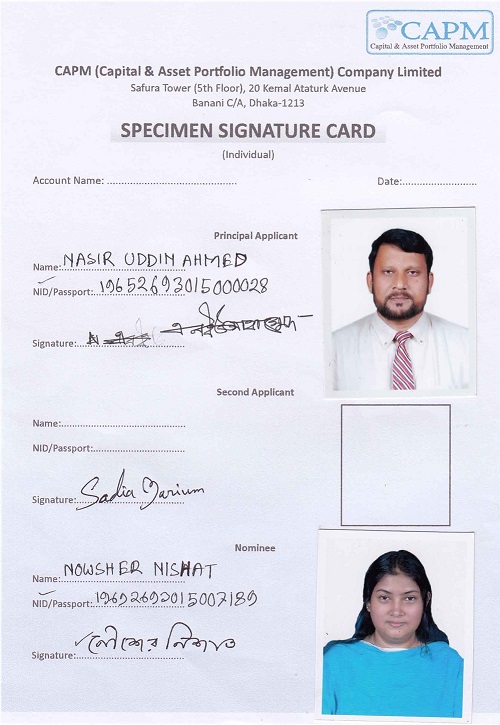 CAPM
Capital & Asset Portfolio Management
CAPM (Capital & Asset Portfolio Management) Company Limited
Safura Tower (5th Floor), 20 Kemal Ataturk Avenue
Banani C/A, Dhaka-1213
SPECIMEN SIGNATURE CARD
(Individual)
Account Name: Date:
Principal Applicant
Name: NASIR UDDIN AHMED
NID/Passport: 19652693015000028
Signature:
Second Applicant
Name:
NID/Passport:
Signature: Sadia Marium
Nominee
Name: NOWSHER NISHAT
NID/Passport:
Signature: নৌশের নিশাত